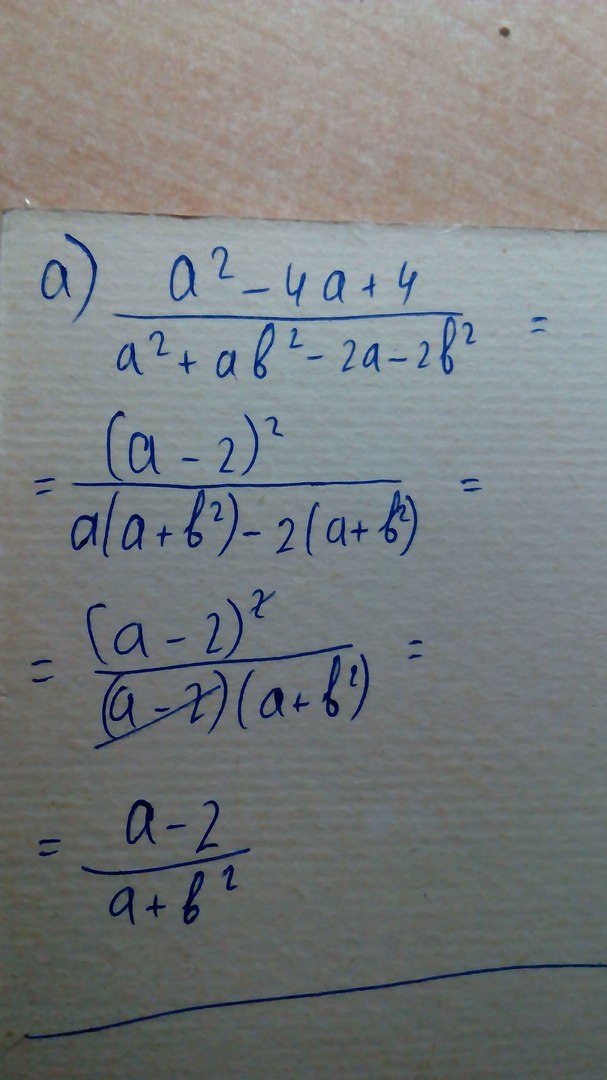 а) a² - 4a + 4
a² + ab² - 2a - 2b² =
= (a - 2)²
a(a + b²) - 2(a + b²) =
= (a - 2)²
(a - 2)(a + b²) =
= a - 2
a + b²